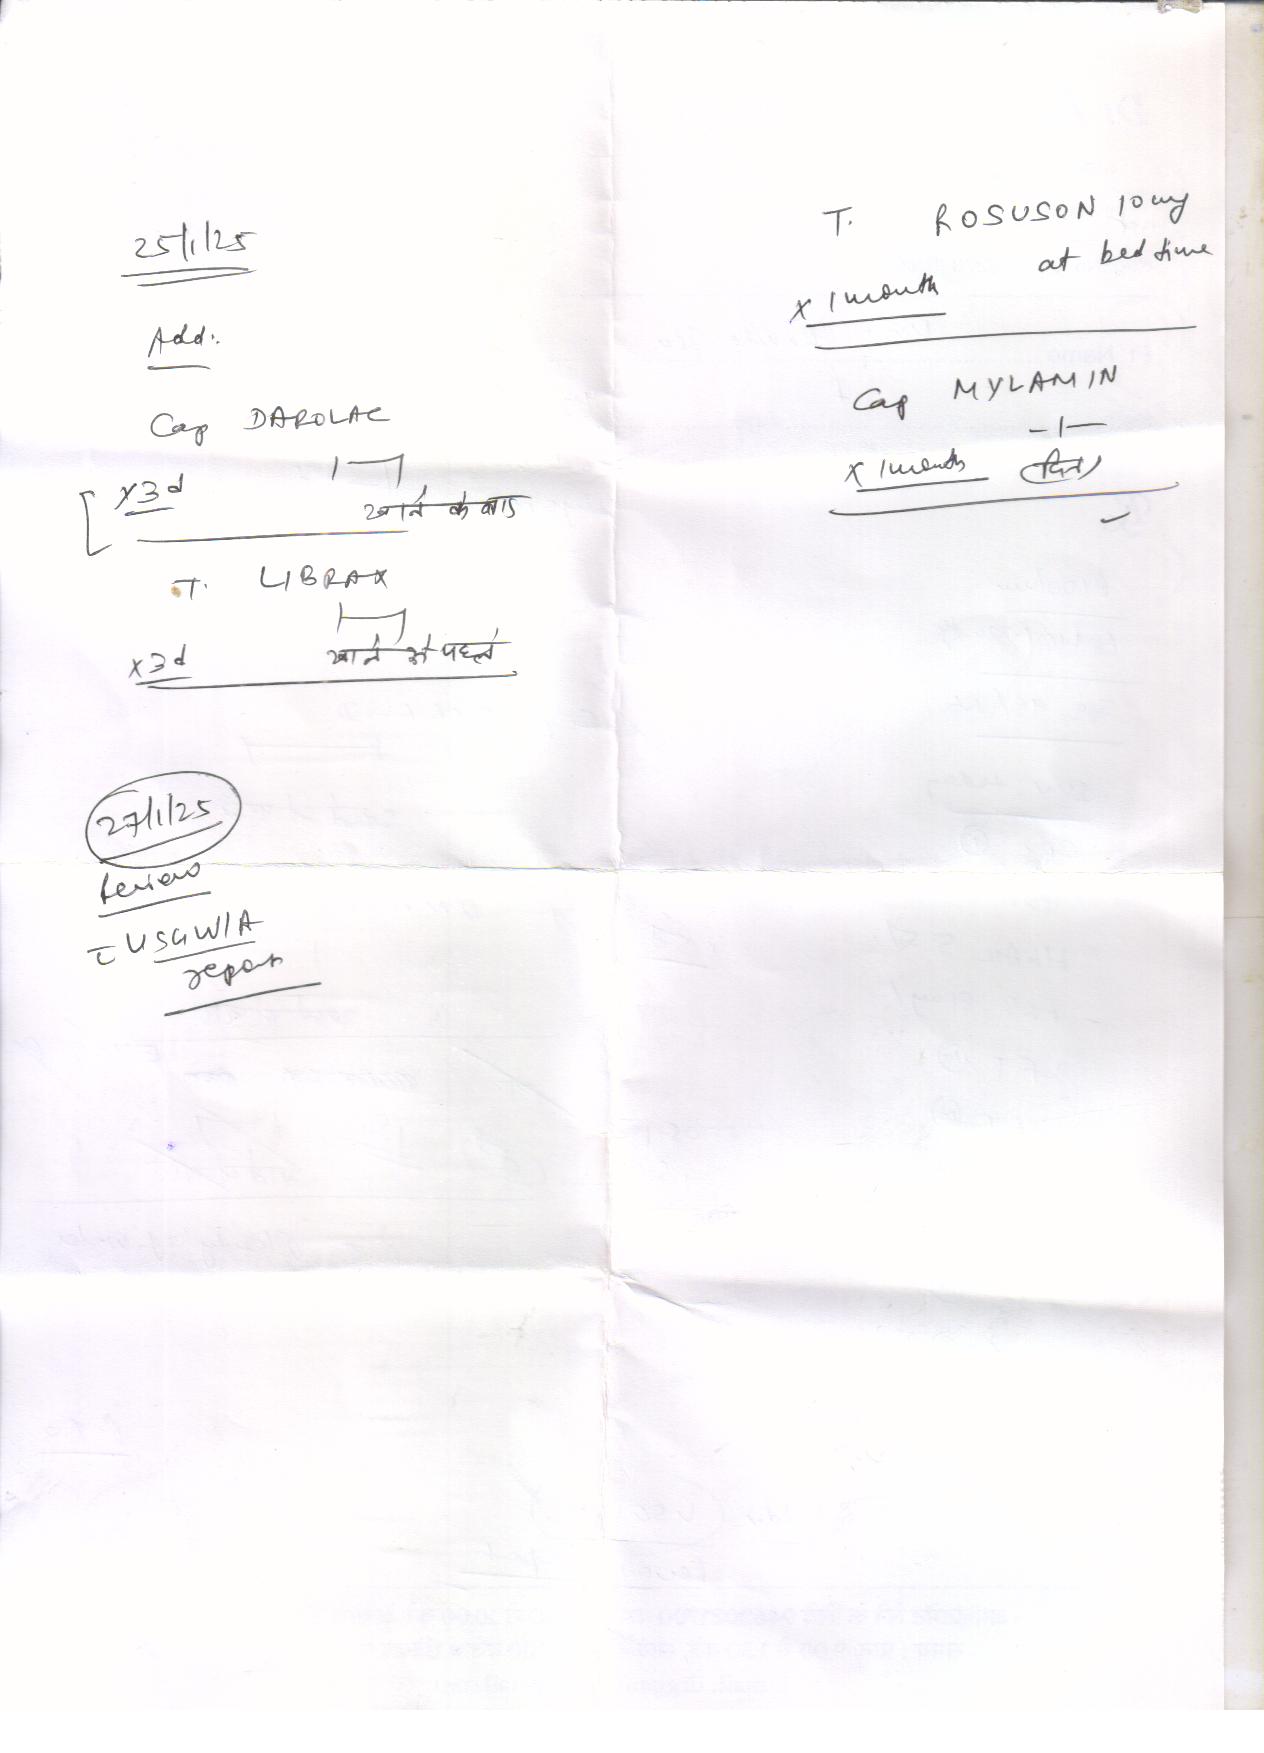 25/1/25
Add:
Cap DAROLAC
x3d
खाने के बाद
T. LIBRAX
खाने से पहले
x3d
27/1/25
Review
c̄ USG W/A
report
T. ROSUSON 10mg
at bed time
x 1 month
Cap MYLAMIN
-1-
x 1 month